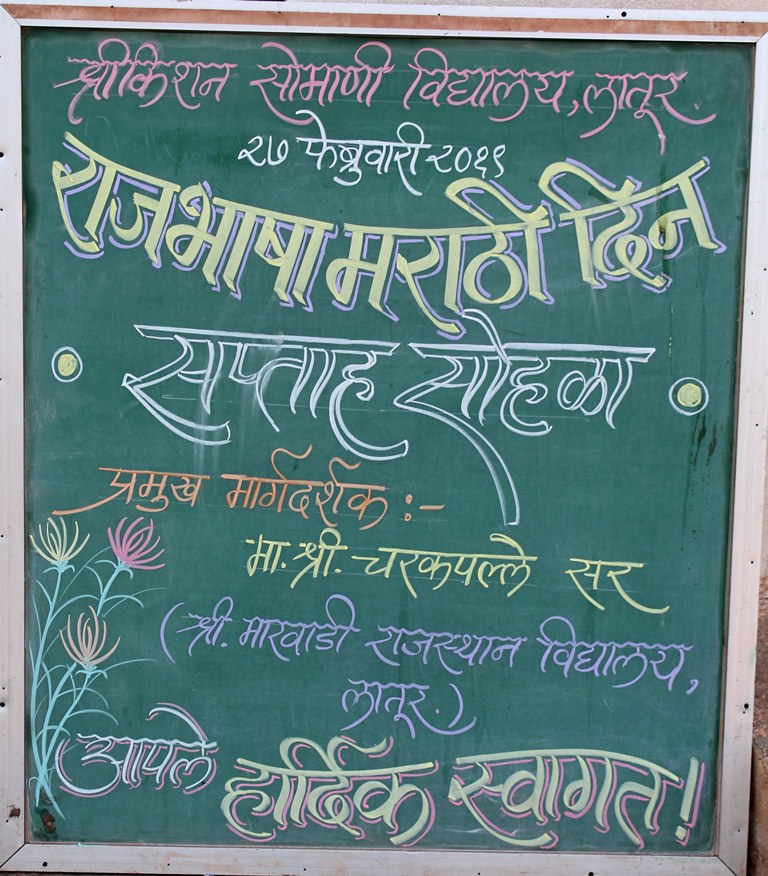 श्रीकिशन सोमाणी विद्यालय, लातूर.
२७ फेब्रुवारी २०१९
राजभाषा मराठी दिन
सप्ताह सोहळा
प्रमुख मार्गदर्शक :-
मा. श्री. चरकपल्ले सर
(श्री. मारवाडी राजस्थान विद्यालय,
लातूर.)
आपले हार्दिक स्वागत!